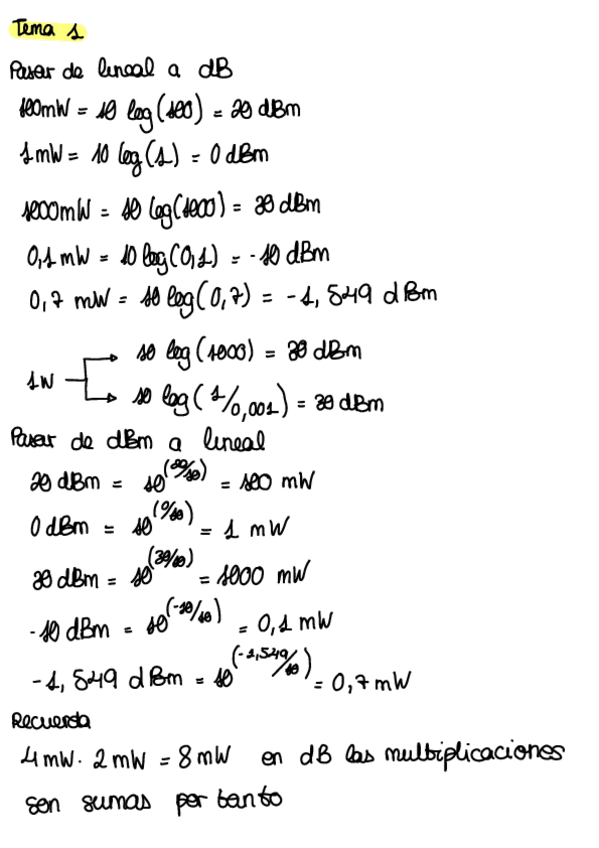 Tema 1
Pasar de lineal a dB
100mW = 10 log(100) = 20 dBm
1mW = 10 log(1) = 0 dBm
1000mW = 10 log(1000) = 30 dBm
0,1 mW = 10 log(0,1) = -10 dBm
0,7 mW = 10 log(0,7) = -1, 549 dBm
10 log (1000) = 30 dBm
1W
10 log ( 1/0,001 ) = 30 dBm
Pasar de dBm a lineal
20 dBm = 10^(20/10) = 100 mW
0 dBm = 10^(0/10) = 1 mW
30 dBm = 10^(30/10) = 1000 mW
-10 dBm = 10^(-10/10) = 0,1 mW
-1, 549 dBm = 10^(-1,549/10) = 0,7 mW
Recuerda
4 mW · 2 mW = 8 mW en dB las multiplicaciones
son sumas por tanto